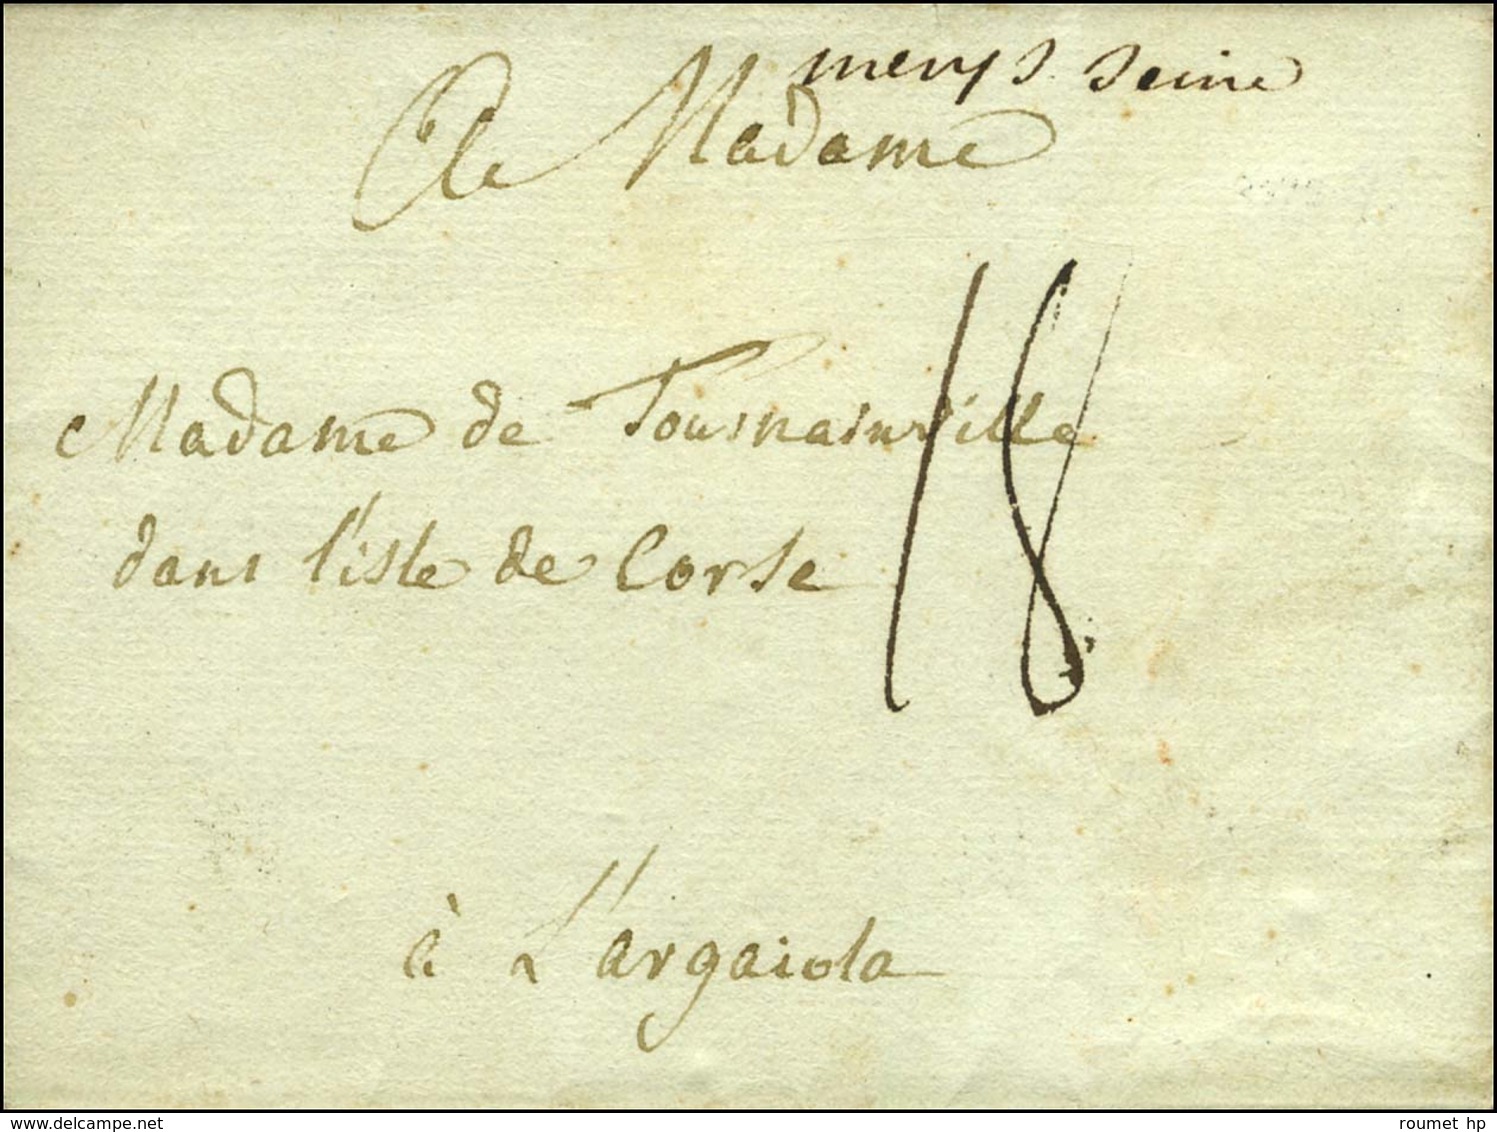 merys seine
A Madame
18
Madame de Tournainville
dans l'isle de Corse
à L'argaiola
roumet hp